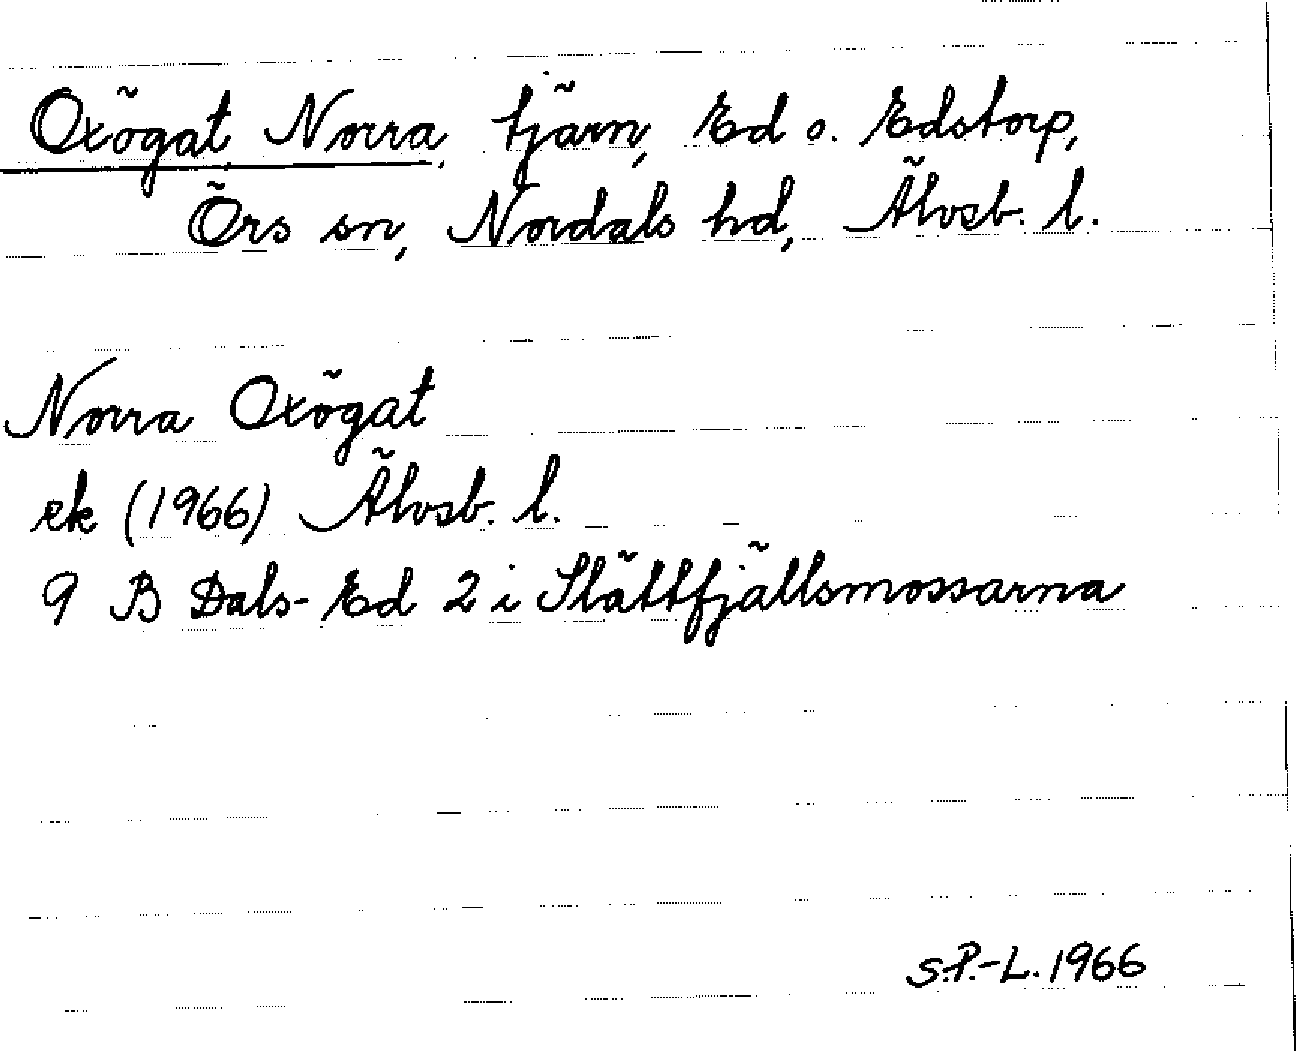 Oxögat, Norra, tjärn, Ed o. Edstorp,
Örs sn, Nordals hd, Älvsb. l.
Norra Oxögat
ek (1966) Älvsb. l.
9 B Dals-Ed 2 i Slättfjällsmossarna
S.P.-L. 1966